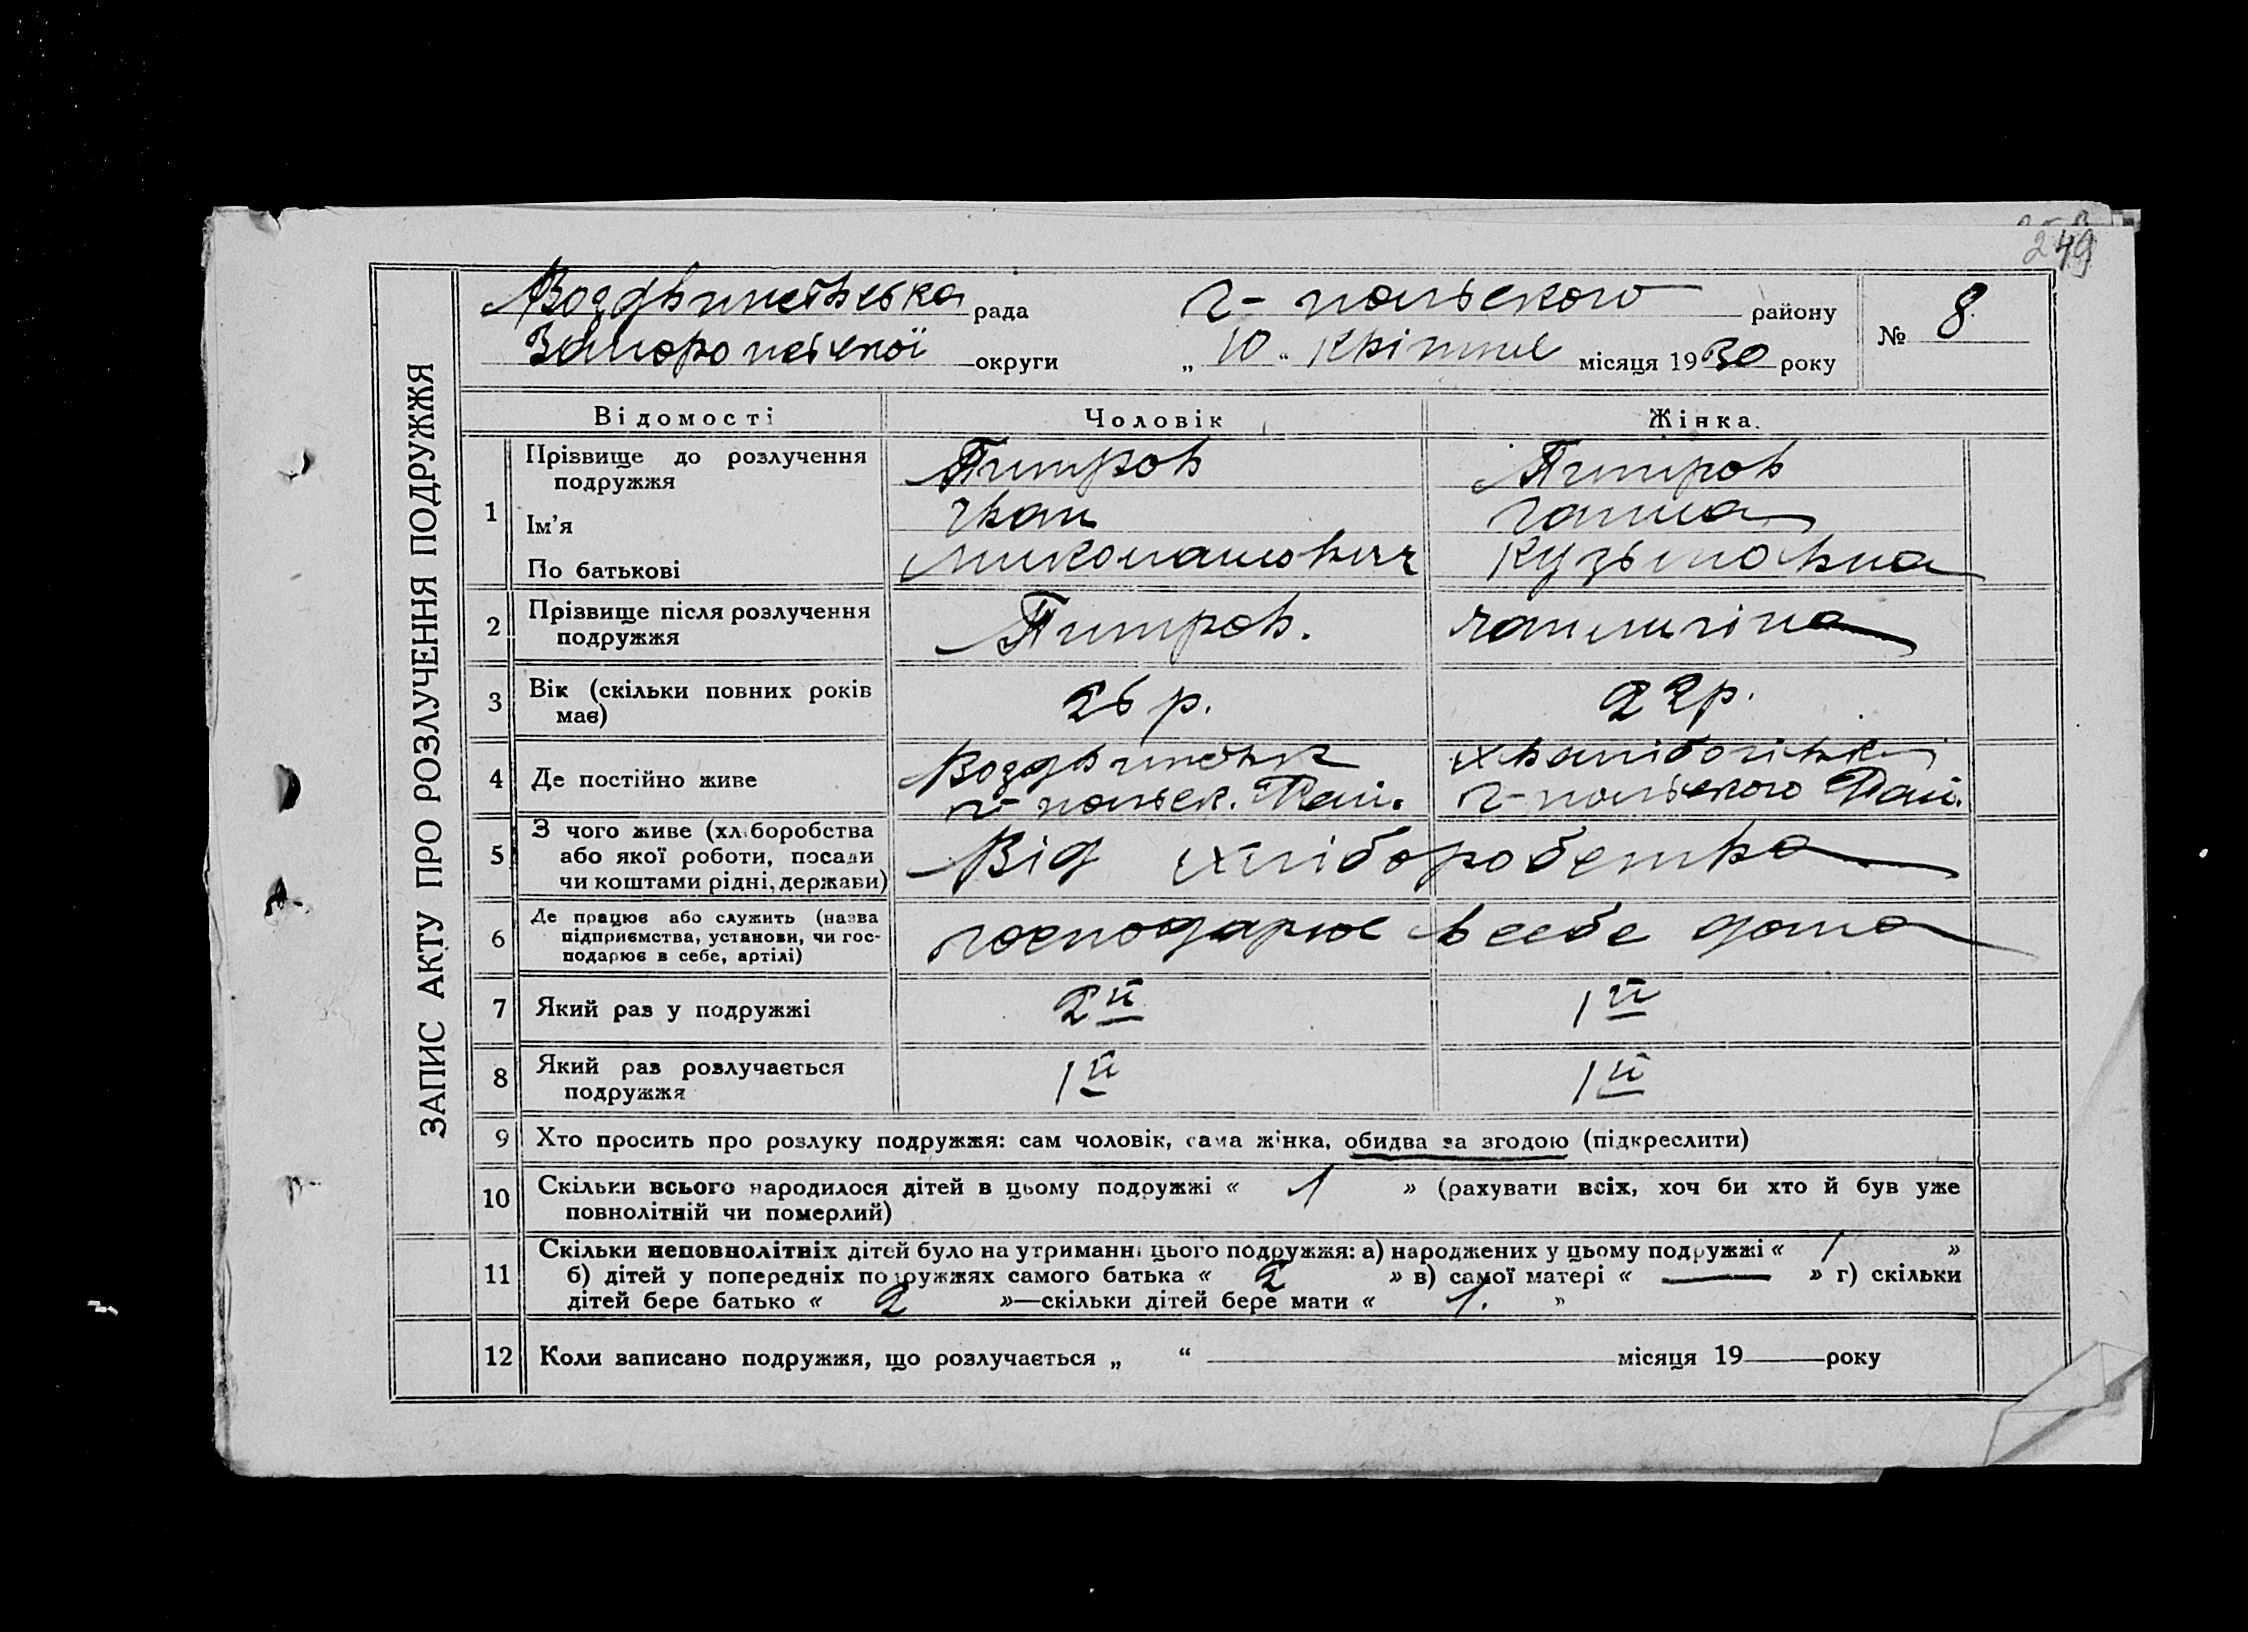 249
ЗАПИС АКТУ ПРО РОЗЛУЧЕННЯ ПОДРУЖЖЯ
Воздвиженська рада Г-польского району
Запорожської округи „10“ квітня місяця 1930 року
№ 8
Відомості Чоловік Жінка.
1 Прізвище до розлучення подружжя Питров Питров
Ім’я Іван Ганна
По батькові Миколайович Кузьмовна
2 Прізвище після розлучення подружжя Питров.
3 Вік (скільки повних років має) 26 р. 22 р.
4 Де постійно живе
Г-польск. Рай. Г-польского Рай.
5 З чого живе (хліборобства
або якої роботи, посади
чи коштами рідні, держави) Від хліборобства
6 Де працює або служить (назва
підприємства, установи, чи гос-
подарює в себе, артілі) господарює в себе дома
7 Який раз у подружжі 2й 1й
8 Який раз розлучається
подружжя 1й 1й
9 Хто просить про розлуку подружжя: сам чоловік, сама жінка, обидва за згодою (підкреслити)
10 Скільки всього народилося дітей в цьому подружжі « 1 » (рахувати всіх, хоч би хто й був уже
повнолітній чи померлий)
11 Скільки неповнолітніх дітей було на утриманні цього подружжя: а) народжених у цьому подружжі « 1 »
б) дітей у попередніх подружжях самого батька « 2 » в) самої матері « — » г) скільки
дітей бере батько « 2 »—скільки дітей бере мати « 1. »
12 Коли записано подружжя, що розлучається „ “ місяця 19 року